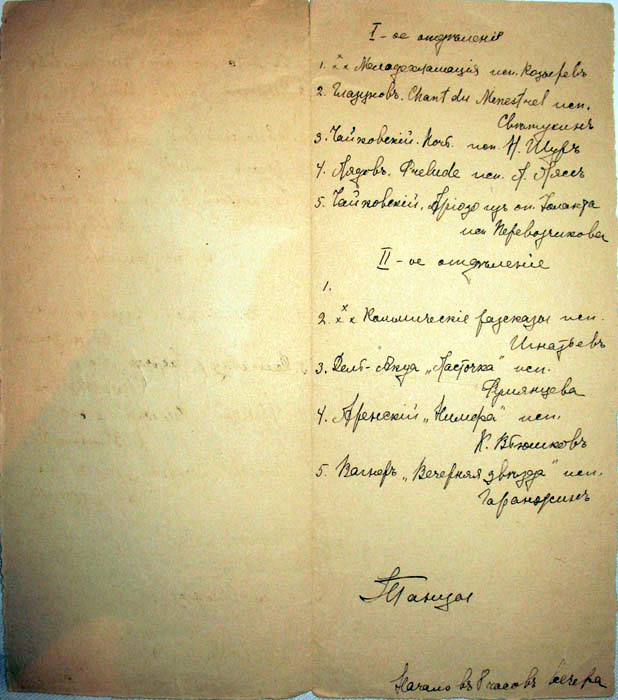 I-ое отдѣленiя
1. ххх Мелодекламацiя исп. Козыревъ
2. Глазуновъ. Chant du Menestrel исп.
Свѣтухинъ
3. Чайковскiй. Ноч. исп. Н. Шуръ
4. Лядовъ. Prelude исп. А. Лясс
5. Чайковскiй. Арiозо изъ оп. Iоланта
исп. Перевозчикова
II-ое отдѣленiе
1.
2. ххх Комическiе разсказы исп.
Игнатьевъ
3. Делл-Аква „Ласточка" исп.
Румянцева
4. Аренскiй „Нимфа" исп.
К. Вѣюшковъ
5. Вагнеръ „Вечерняя звѣзда" исп.
Гаранжинъ
Танцы
Начало въ 8 часовъ вечера